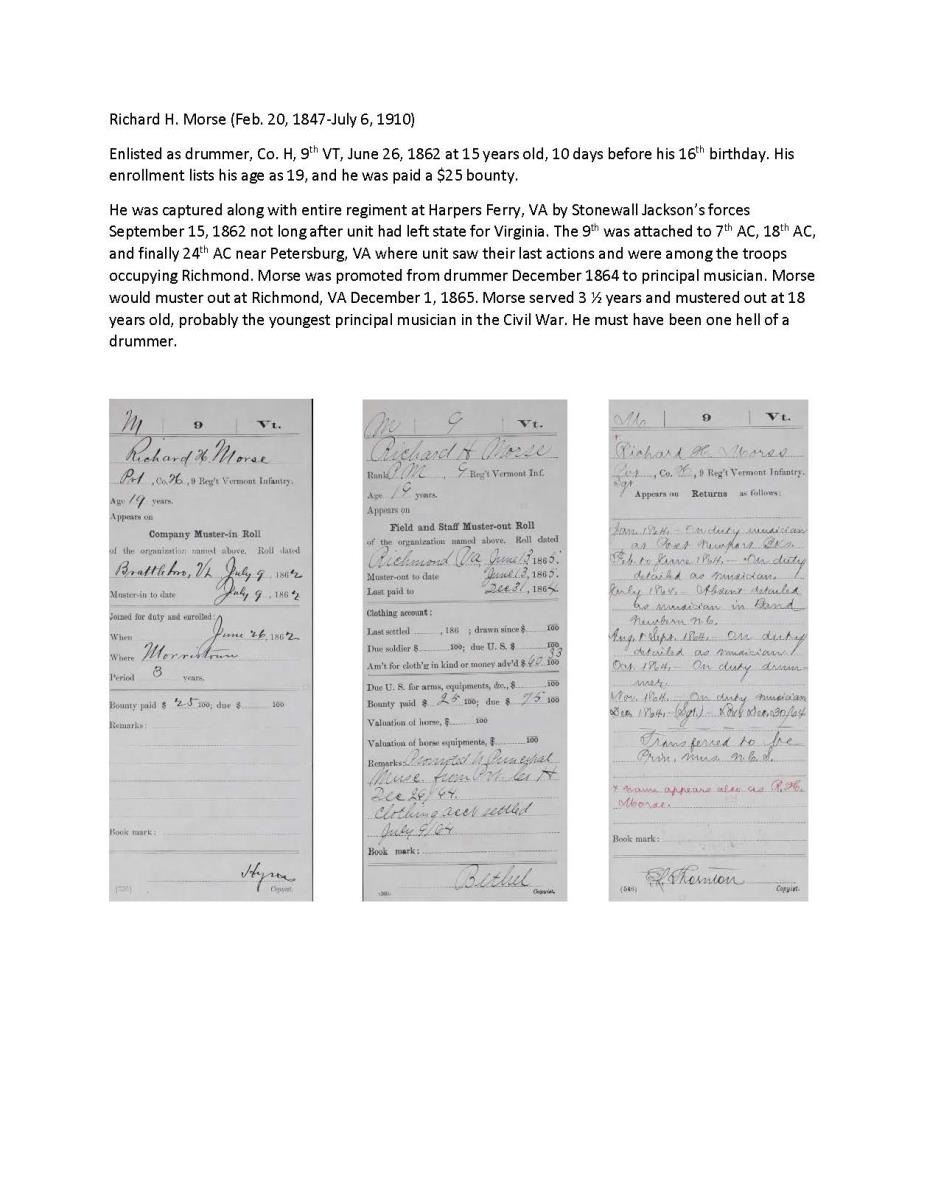 Richard H. Morse (Feb. 20, 1847-July 6, 1910)
Enlisted as drummer, Co. H, 9th VT, June 26, 1862 at 15 years old, 10 days before his 16th birthday. His
enrollment lists his age as 19, and he was paid a $25 bounty.
He was captured along with entire regiment at Harpers Ferry, VA by Stonewall Jackson's forces
September 15, 1862 not long after unit had left state for Virginia. The 9th was attached to 7th AC, 18th AC,
and finally 24th AC near Petersburg, VA where unit saw their last actions and were among the troops
occupying Richmond. Morse was promoted from drummer December 1864 to principal musician. Morse
would muster out at Richmond, VA December 1, 1865. Morse served 3 ½ years and mustered out at 18
years old, probably the youngest principal musician in the Civil War. He must have been one hell of a
drummer.
M | 9 | Vt.
Richard H Morse
Pvt, Co. H, 9 Reg't Vermont Infantry.
Age 19 years.
Appears on
Company Muster-in Roll
of the organization named above. Roll dated
Brattleboro, Vt July 9, 1862
Muster-in to date July 9, 1862
Joined for duty and enrolled:
When June 26, 1862
Where Morristown
Period 3 years.
Bounty paid $ 25 100; due $ 100
Remarks:
Book mark:
Copyist.
M | 9 | Vt.
Richard H Morse
Rank P.M., 9 Reg't Vermont Inf.
Age 19 years.
Appears on
Field and Staff Muster-out Roll
of the organization named above. Roll dated
Richmond Va June 13, 1865.
Muster-out to date June 13, 1865.
Last paid to Dec 31, 1864.
Clothing account:
Last settled , 186 ; drawn since $ 100
Due soldier $ 100; due U. S. $ 100
Am't for cloth'g in kind or money adv'd $ 60 33 100
Due U. S. for arms, equipments, &c., $ 100
Bounty paid $ 25 100; due $ 75 100
Valuation of horse, $ 100
Valuation of horse equipments, $ 100
Remarks: Promoted to Principal
Muse. from Co H
Dec 26/64.
Clothing acct settled
July 9/64
Book mark:
Bethel
Copyist.
M | 9 | Vt.
Richard H. Morse
Co. H, 9 Reg't Vermont Infantry.
Sgt
Appears on Returns as follows:
Jan. 1864. - On duty musician
as Post Newport Bks.
Feb. to June 1864. - On duty
detailed as musician.
July 1864. - Absent detailed
as musician in Band
Newbern N.C.
Aug. & Sept. 1864. - On duty
detailed as musician
Oct. 1864. - On duty drum-
mer.
Nov. 1864. - On duty musician
Dec. 1864. (Sgt.) - Dec. 30/64
Transferred to be
Prin. mus. N.C.S.
x name appears also as R. H.
Morse.
Book mark:
Thornton
(546) Copyist.